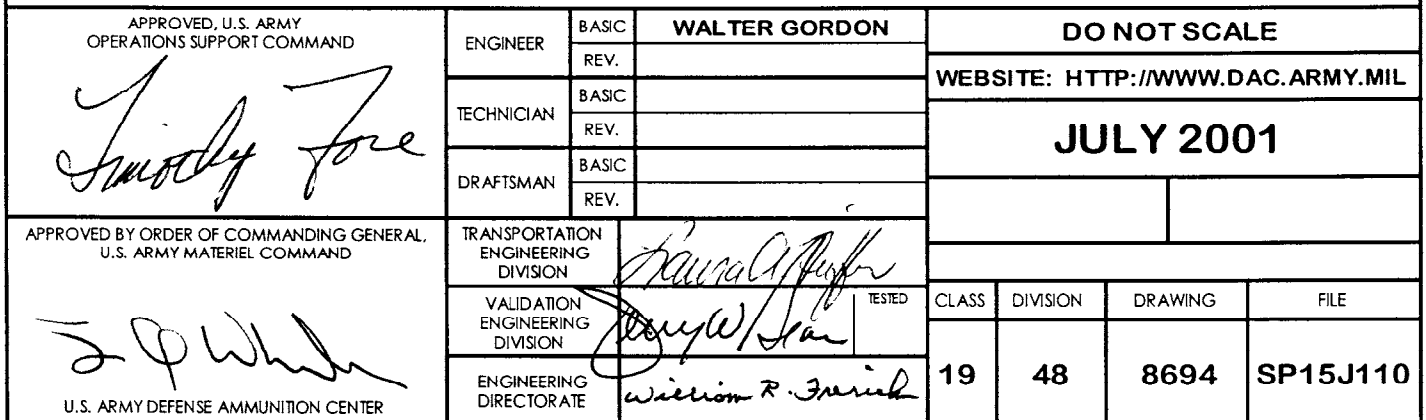 APPROVED, U.S. ARMY
OPERATIONS SUPPORT COMMAND
Timothy Fore
APPROVED BY ORDER OF COMMANDING GENERAL,
U.S. ARMY MATERIEL COMMAND
U.S. ARMY DEFENSE AMMUNITION CENTER
ENGINEER
BASIC
WALTER GORDON
REV.
TECHNICIAN
BASIC
REV.
DRAFTSMAN
BASIC
REV.
TRANSPORTATION
ENGINEERING
DIVISION
Laura A
VALIDATION
ENGINEERING
DIVISION
TESTED
Jerry W
ENGINEERING
DIRECTORATE
William R. Frerichs
DO NOT SCALE
WEBSITE: HTTP://WWW.DAC.ARMY.MIL
JULY 2001
CLASS DIVISION DRAWING FILE
19 48 8694 SP15J110